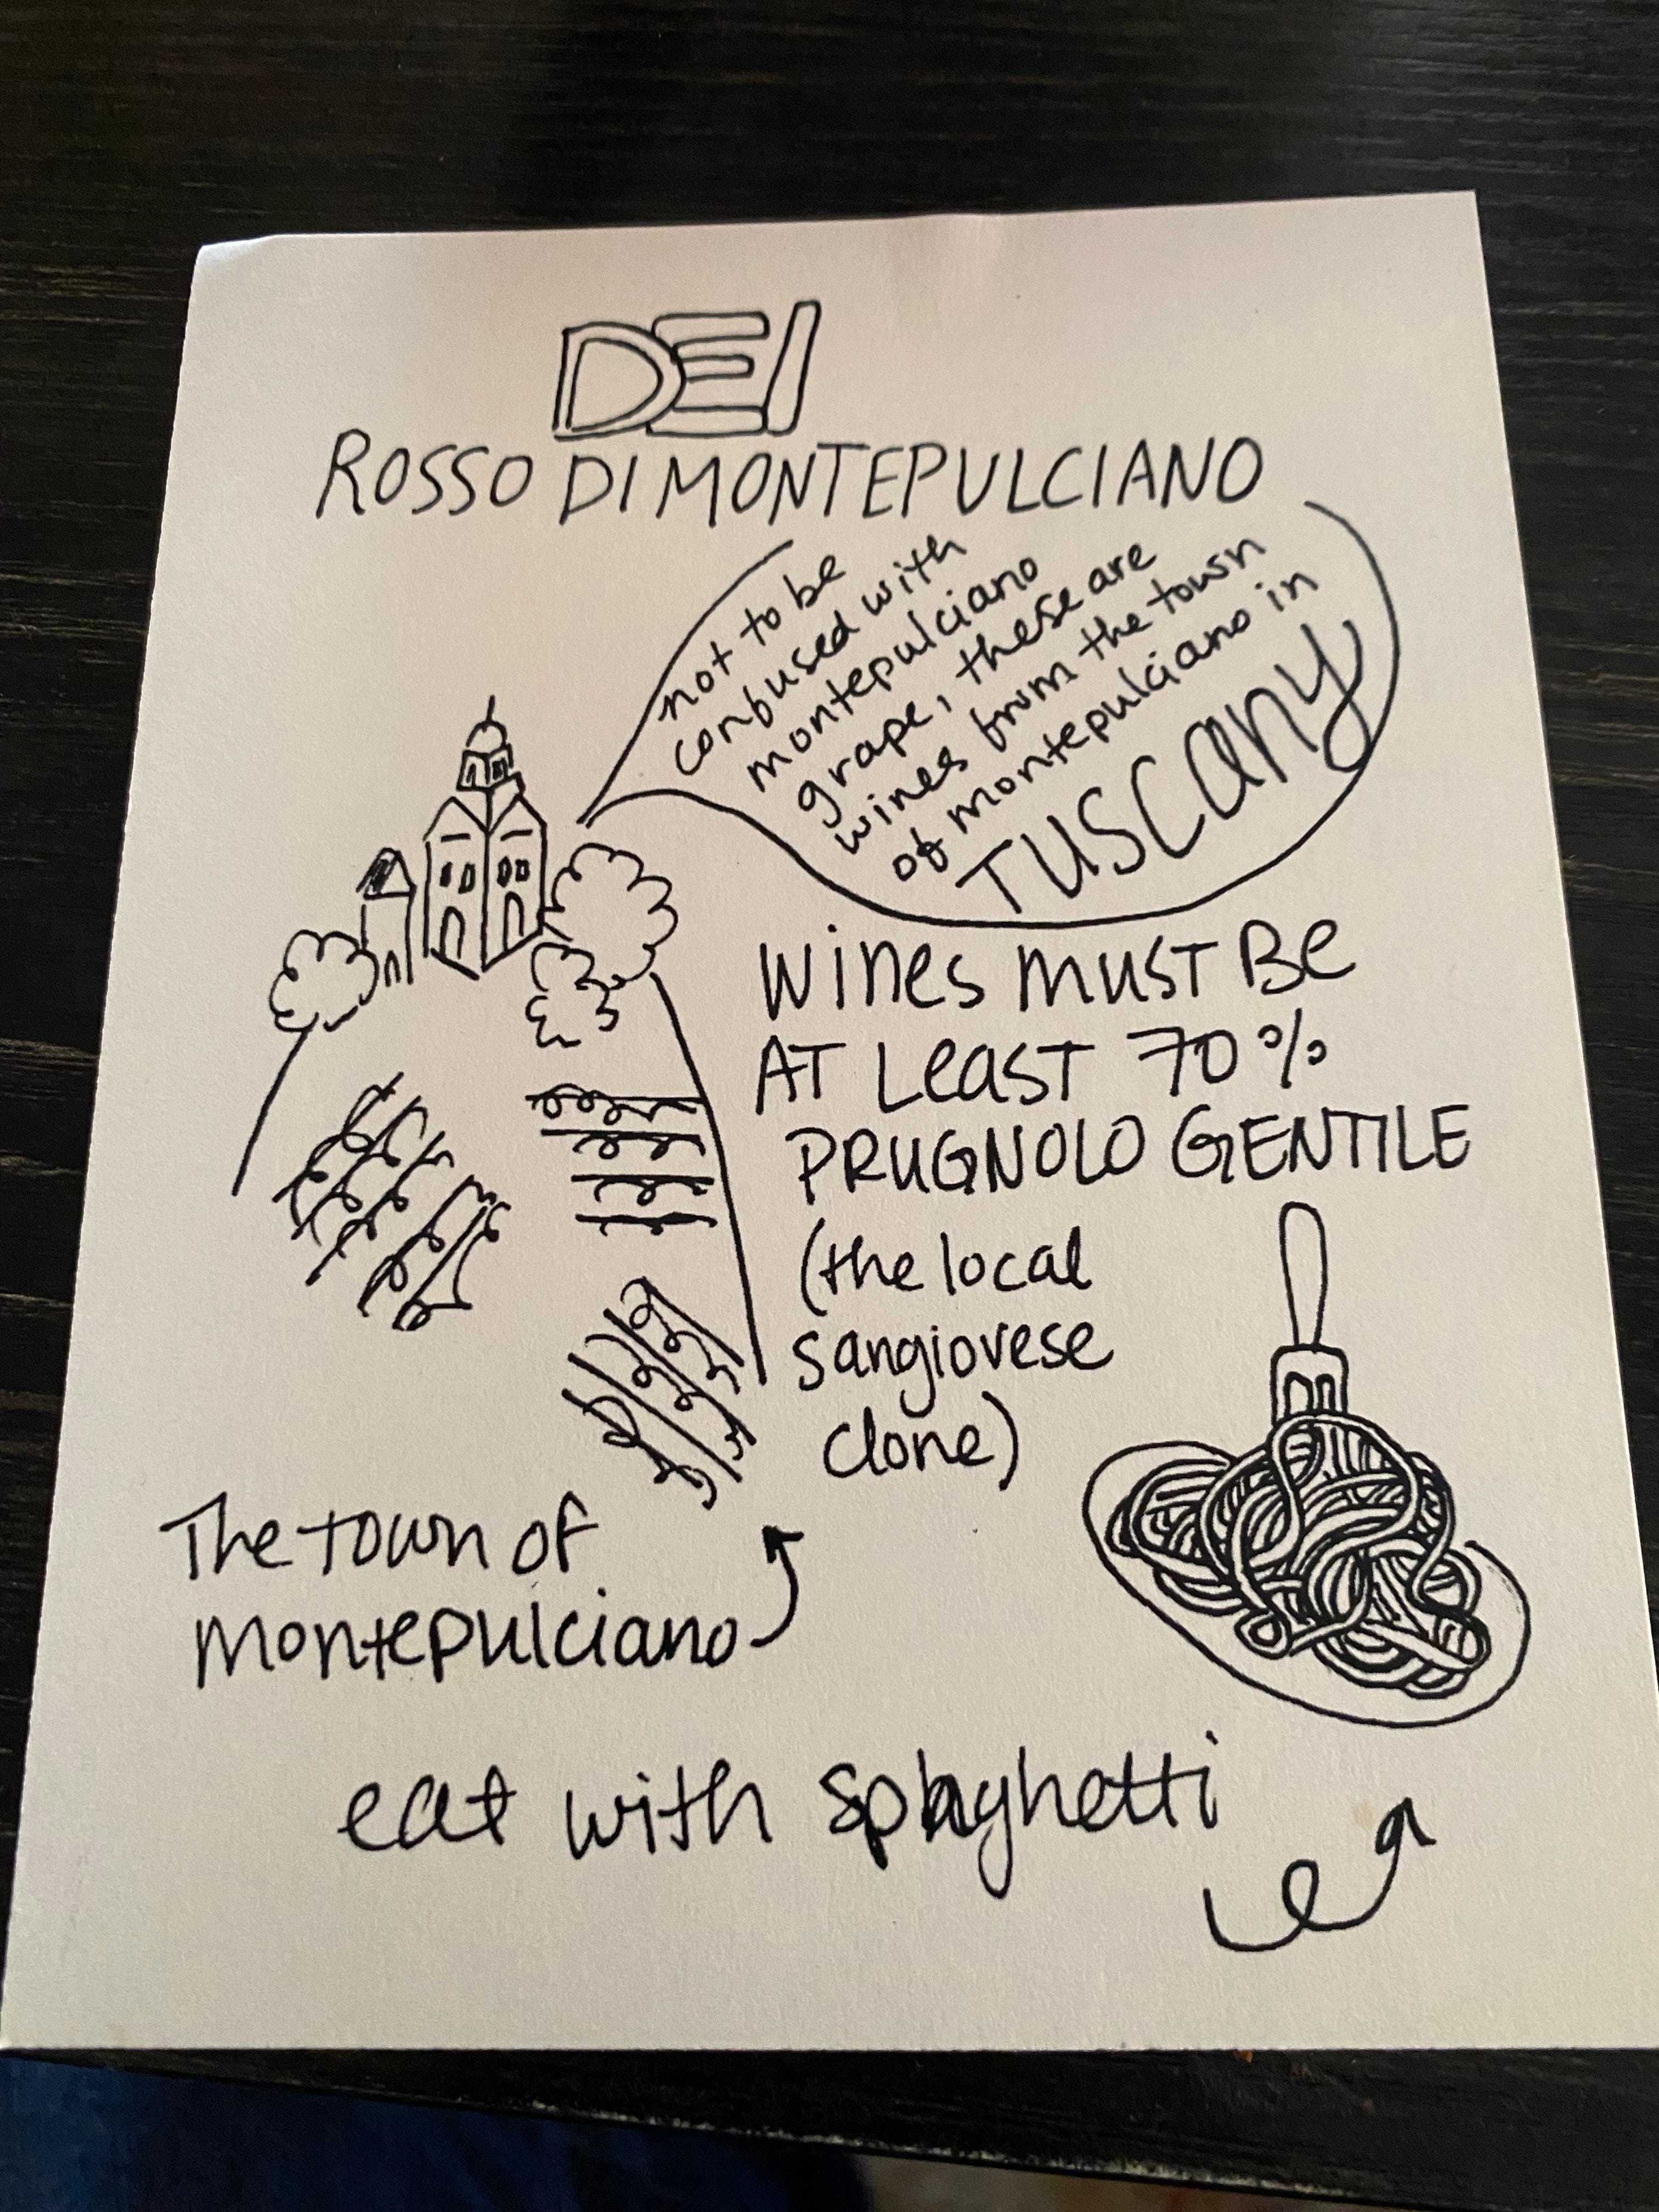 DEI
ROSSO DI MONTEPULCIANO
not to be
confused with
montepulciano
grape, these are
wines from the town
of montepulciano in
TUSCANY
WINES MUST BE
AT LEAST 70%
PRUGNOLO GENTILE
(the local
sangiovese
clone)
The town of
montepulciano
eat with spaghetti